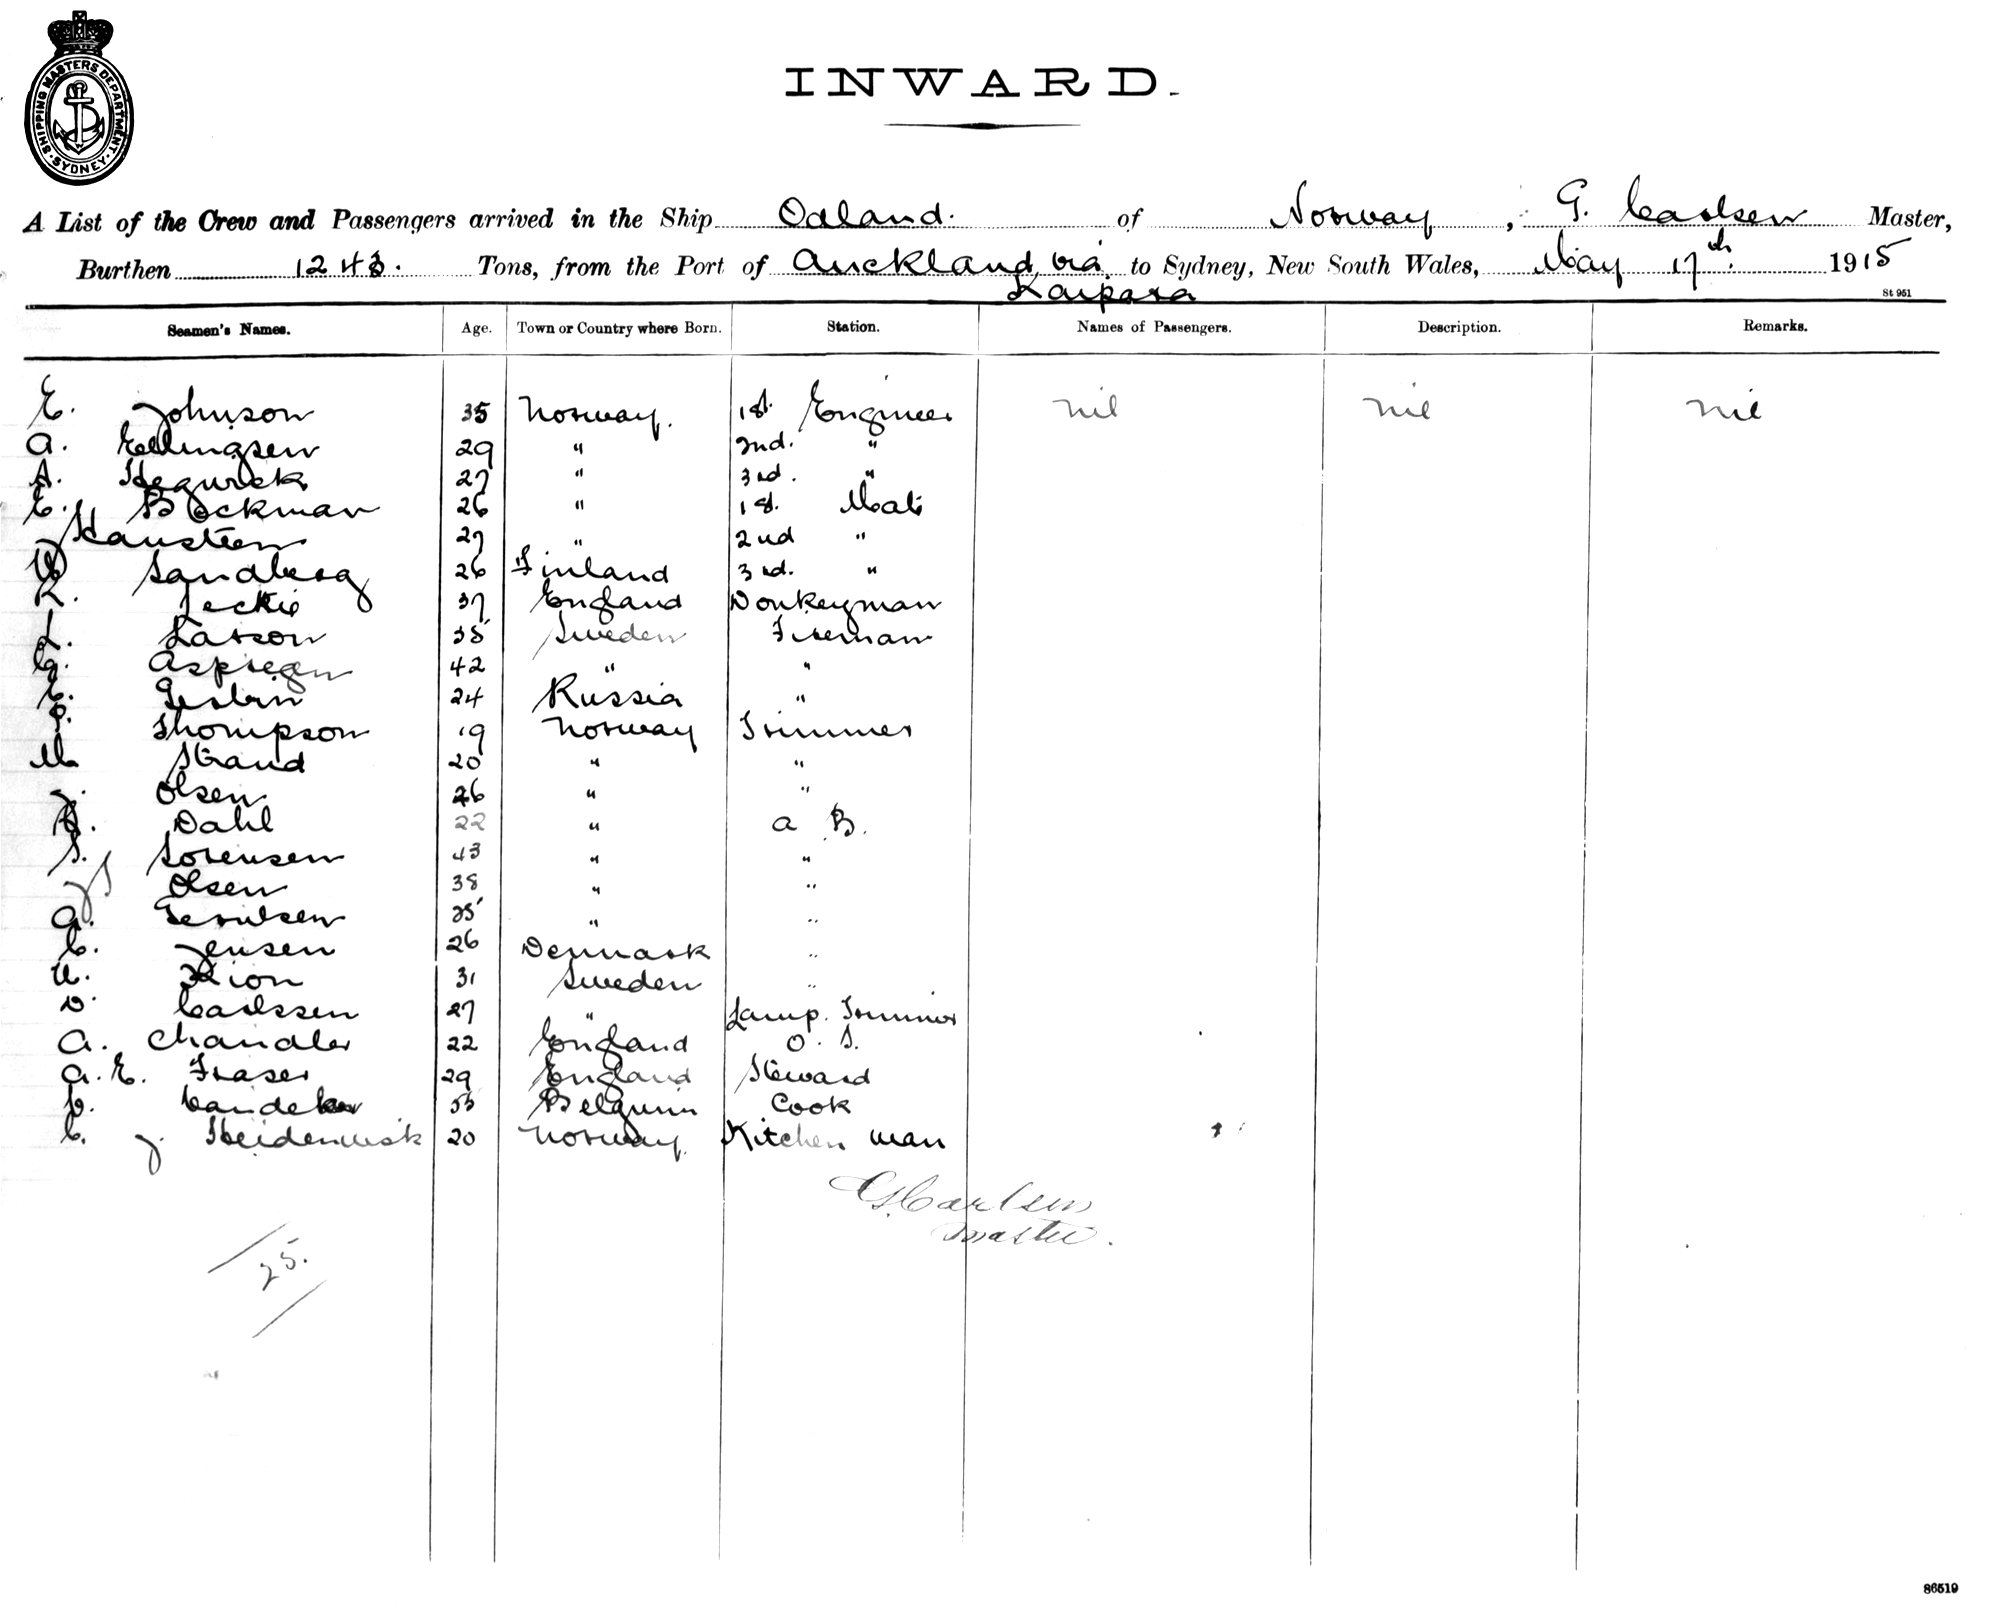 SHIPPING MASTERS DEPARTMENT · SYDNEY ·
INWARD.
A List of the Crew and Passengers arrived in the Ship Odland. of Norway, G. Carlsen Master,
Burthen 1243. Tons, from the Port of Auckland via to Sydney, New South Wales, May 17th 1915
Kaipara
St 951
Seamen's Names. Age. Town or Country where Born. Station. Names of Passengers. Description. Remarks.
E. Johnson 35 Norway. 1st. Engineer nil nil nil
A. Ellingsen 29 " 2nd. "
A. 27 " 3rd. "
E. Bockman 26 " 1st. Mate
Hansteen 27 " 2nd "
Sandberg 26 Finland 3rd. "
R. Leckie 37 England Donkeyman
L. Larson 35 Sweden Fireman
G. Aspregen 42 " "
E. 24 Russia "
P. Thompson 19 Norway Trimmer
M Strand 20 " "
J. Olsen 26 " "
Dahl 22 " A B.
S. Sorensen 43 " "
J Olsen 38 " "
A. 25 " "
C. Jensen 26 Denmark "
U. Kion 31 Sweden "
D. Carlssen 27 " Lamp. Trimmer
A. Chandler 22 England O. S.
A. E. Fraser 29 England Steward
C. 55 Belguim Cook
C. J. 20 Norway. Kitchen man
G. Carlsen
Master.
25.
86519